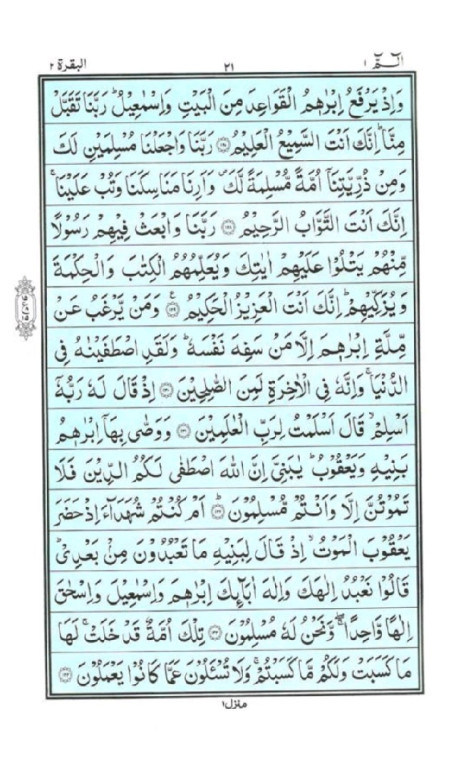 الٓمّٓ ١ ٢١ البقرة ٢
وَاِذْ يَرْفَعُ اِبْرٰهٖمُ الْقَوَاعِدَ مِنَ الْبَيْتِ وَاِسْمٰعِيْلُ ؕ رَبَّنَا تَقَبَّلْ
مِنَّا ؕ اِنَّكَ اَنْتَ السَّمِيْعُ الْعَلِيْمُ ﴿۱۲۷﴾ رَبَّنَا وَاجْعَلْنَا مُسْلِمَيْنِ لَكَ
وَمِنْ ذُرِّيَّتِنَاۤ اُمَّةً مُّسْلِمَةً لَّكَ ۪ وَاَرِنَا مَنَاسِكَنَا وَتُبْ عَلَيْنَا ۚ
اِنَّكَ اَنْتَ التَّوَّابُ الرَّحِيْمُ ﴿۱۲۸﴾ رَبَّنَا وَابْعَثْ فِيْهِمْ رَسُوْلًا
مِّنْهُمْ يَتْلُوْا عَلَيْهِمْ اٰيٰتِكَ وَيُعَلِّمُهُمُ الْكِتٰبَ وَالْحِكْمَةَ
وَيُزَكِّيْهِمْ ؕ اِنَّكَ اَنْتَ الْعَزِيْزُ الْحَكِيْمُ ﴿۱۲۹﴾ وَمَنْ يَّرْغَبُ عَنْ
مِّلَّةِ اِبْرٰهٖمَ اِلَّا مَنْ سَفِهَ نَفْسَهٗ ؕ وَلَقَدِ اصْطَفَيْنٰهُ فِى
الدُّنْيَا ۚ وَاِنَّهٗ فِى الْاٰخِرَةِ لَمِنَ الصّٰلِحِيْنَ ﴿۱۳۰﴾ اِذْ قَالَ لَهٗ رَبُّهٗۤ
اَسْلِمْ ۙ قَالَ اَسْلَمْتُ لِرَبِّ الْعٰلَمِيْنَ ﴿۱۳۱﴾ وَوَصّٰى بِهَاۤ اِبْرٰهٖمُ
بَنِيْهِ وَيَعْقُوْبُ ؕ يٰبَنِىَّ اِنَّ اللّٰهَ اصْطَفٰى لَكُمُ الدِّيْنَ فَلَا
تَمُوْتُنَّ اِلَّا وَاَنْتُمْ مُّسْلِمُوْنَ ﴿۱۳۲﴾ اَمْ كُنْتُمْ شُهَدَآءَ اِذْ حَضَرَ
يَعْقُوْبَ الْمَوْتُ ۙ اِذْ قَالَ لِبَنِيْهِ مَا تَعْبُدُوْنَ مِنْۢ بَعْدِىْ ؕ
قَالُوْا نَعْبُدُ اِلٰهَكَ وَاِلٰهَ اٰبَآئِكَ اِبْرٰهٖمَ وَاِسْمٰعِيْلَ وَاِسْحٰقَ
اِلٰهًا وَّاحِدًا ۖۚ وَّنَحْنُ لَهٗ مُسْلِمُوْنَ ﴿۱۳۳﴾ تِلْكَ اُمَّةٌ قَدْ خَلَتْ ۚ لَهَا
مَا كَسَبَتْ وَلَكُمْ مَّا كَسَبْتُمْ ۚ وَلَا تُسْـَٔلُوْنَ عَمَّا كَانُوْا يَعْمَلُوْنَ ﴿۱۳۴﴾
منزل ١